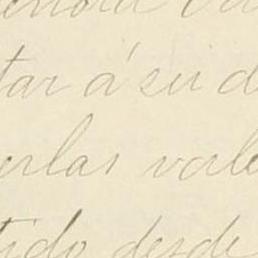 tar á su d
erlas vale
tido desde